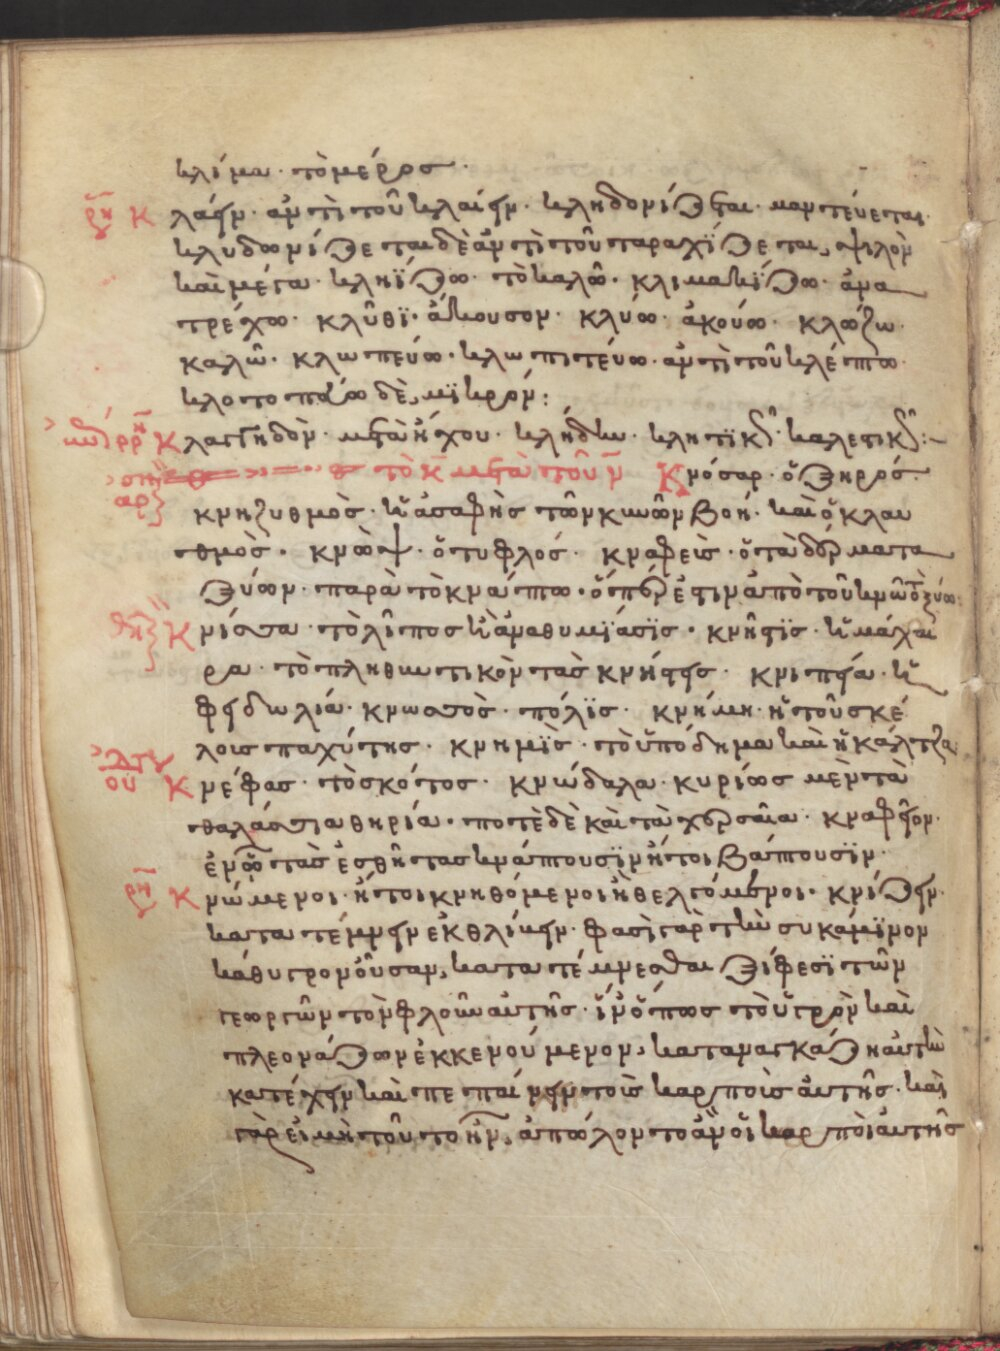 κλίμα · τὸ μέρος ·
Κλάειν · ἀντὶ τοῦ κλαίειν · κληδονίζεται · μαντεύεται ·
κλυδωνίζεται δὲ ἀντὶ τοῦ ταραχίζεται, ψιλὸν
καὶ μέγα · κληΐζω · τὸ καλῶ · κλιμακίζω · ἀνα
τρέχω · κλῦθϊ · ἄκουσον · κλύω · ἀκούω · κλώζω ·
καλῶ · κλωπεύω · κλωπιτεύω · ἀντὶ τοῦ κλέπτω ·
κλοτοποιῶ δὲ, μϊκρόν :
Κλαγγηδὸν · μετὰ ἤχου · κλήδην · κλητϊκῶς · καλεστικῶς :-
τὸ κ μετὰ τοῦ ν Κνόσαρ · ὁ ξηρός ·
κνηζυθμὸς · ἡ ἀσαφὴς τῶν κυνῶν βοή · καὶ ὁ κλαυ
θμὸς · κνὼψ · ὁ τυφλός · κναφεὺς · ὁ τὰ δέρματα
ξύων · παρὰ τὸ κνάπτω · ὅπερ ἐστιν ἀπὸ τοῦ κνῶ τὸ ξύω ·
Κνίσσα · τὸ λίπος ἢ ἀναθυμϊάσϊς · κνῆστϊς · ἡ μάχαι
ρα · τὸ πληθυντικὸν τὰς κνήστεις · κνιπεία · ἡ
φειδωλιά · κνωσσὸς · πόλϊς · κνήμη · ἡ τοῦ σκέ
λους παχύτης · κνημὶς · τὸ ὑπόδημα καὶ ἡ κάλτζα
Κνέφας · τὸ σκότος · κνώδαλα · κυρίως μὲν τὰ
θαλάσσια θηρία · ποτὲ δὲ καὶ τὰ χερσαῖα · κναφεῖον ·
ἐν ᾧ τὰς ἐσθῆτας κνάπτουσϊν ἤτοι βάπτουσϊν ·
Κνώμενοι · ἤτοι κνηθόμενοι ἢ θελγόμενοι · κνίζειν ·
κατατέμνειν ἐκθλίβειν · φασὶ γὰρ τὴν συκάμϊνον
κάθυγρον οὖσαν, κατατέμνεσθαι ξίφεσϊ τῶν
γεωργῶν τὸν φλοιὸν αὐτῆς · ἵν' ὅπως τὸ ὑγρὸν καὶ
πλεονάζων ἐκκενούμενον, καταναγκάζῃ αὐτὴν
κατέχειν καὶ πεπαίνειν τοὺς καρποὺς αὐτῆς · καὶ
γὰρ εἰ μὴ τοῦτο ἦν, ἀπώλοντο ἂν οἱ καρποὶ αὐτῆς